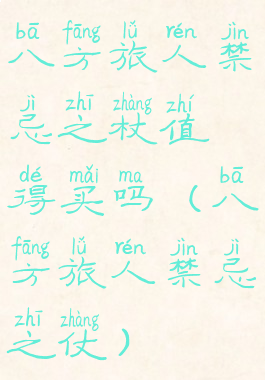 bā fāng lǔ rén jìn
八方旅人禁
jì zhī zhàng zhí
忌之杖值
dé mǎi ma bā
得买吗（八
fāng lǔ rén jìn jì
方旅人禁忌
zhī zhàng
之仗）